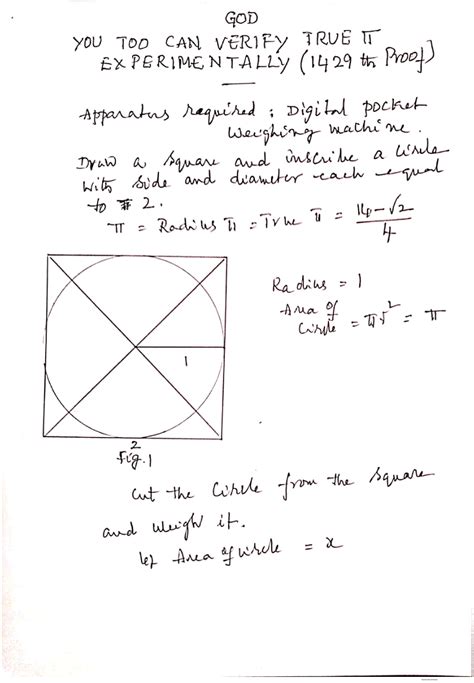 GOD
YOU TOO CAN VERIFY TRUE π
EXPERIMENTALLY (1429 th Proof)
Apparatus required : Digital pocket
weighing machine.
Draw a square and inscribe a circle
with side and diameter each equal
to 2.
π = Radius π = True π = 14-√2
4
Radius = 1
Area of
Circle = πr² = π
1
2
Fig.1
Cut the Circle from the square
and weigh it.
let Area of circle = x